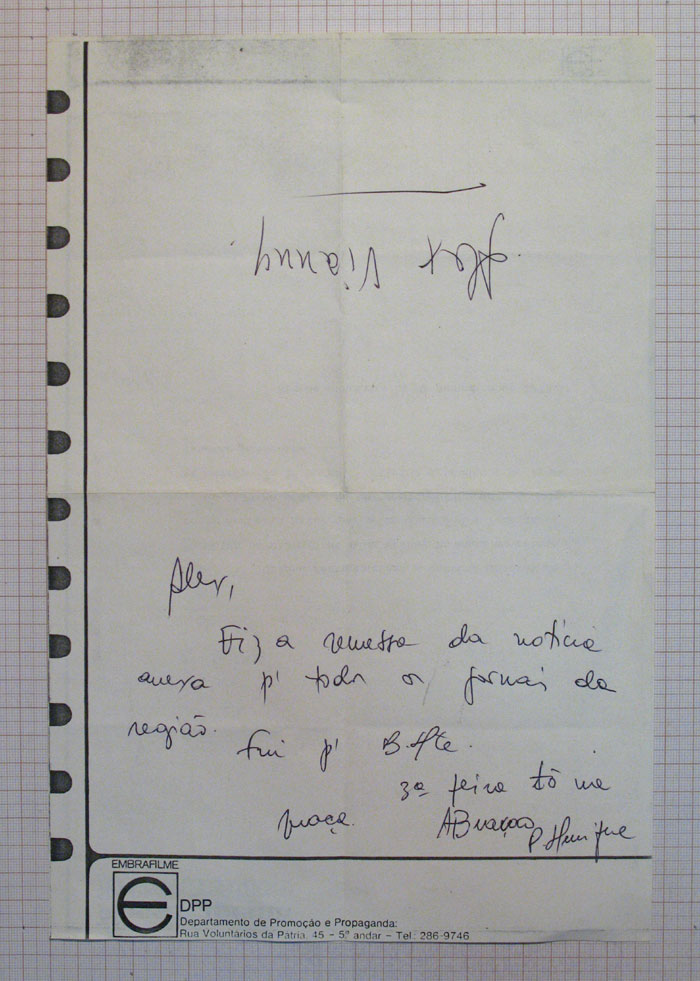 Alex Vianny
Alex,
Fiz a remessa da notícia
anexa p' todos os jornais da
região.
Fui p' B. Hte.
3ª feira tô na
praça.
Abraços
P. Henrique
EMBRAFILME
e DPP
Departamento de Promoção e Propaganda:
Rua Voluntários da Pátria, 45 - 5º andar - Tel: 286-9746